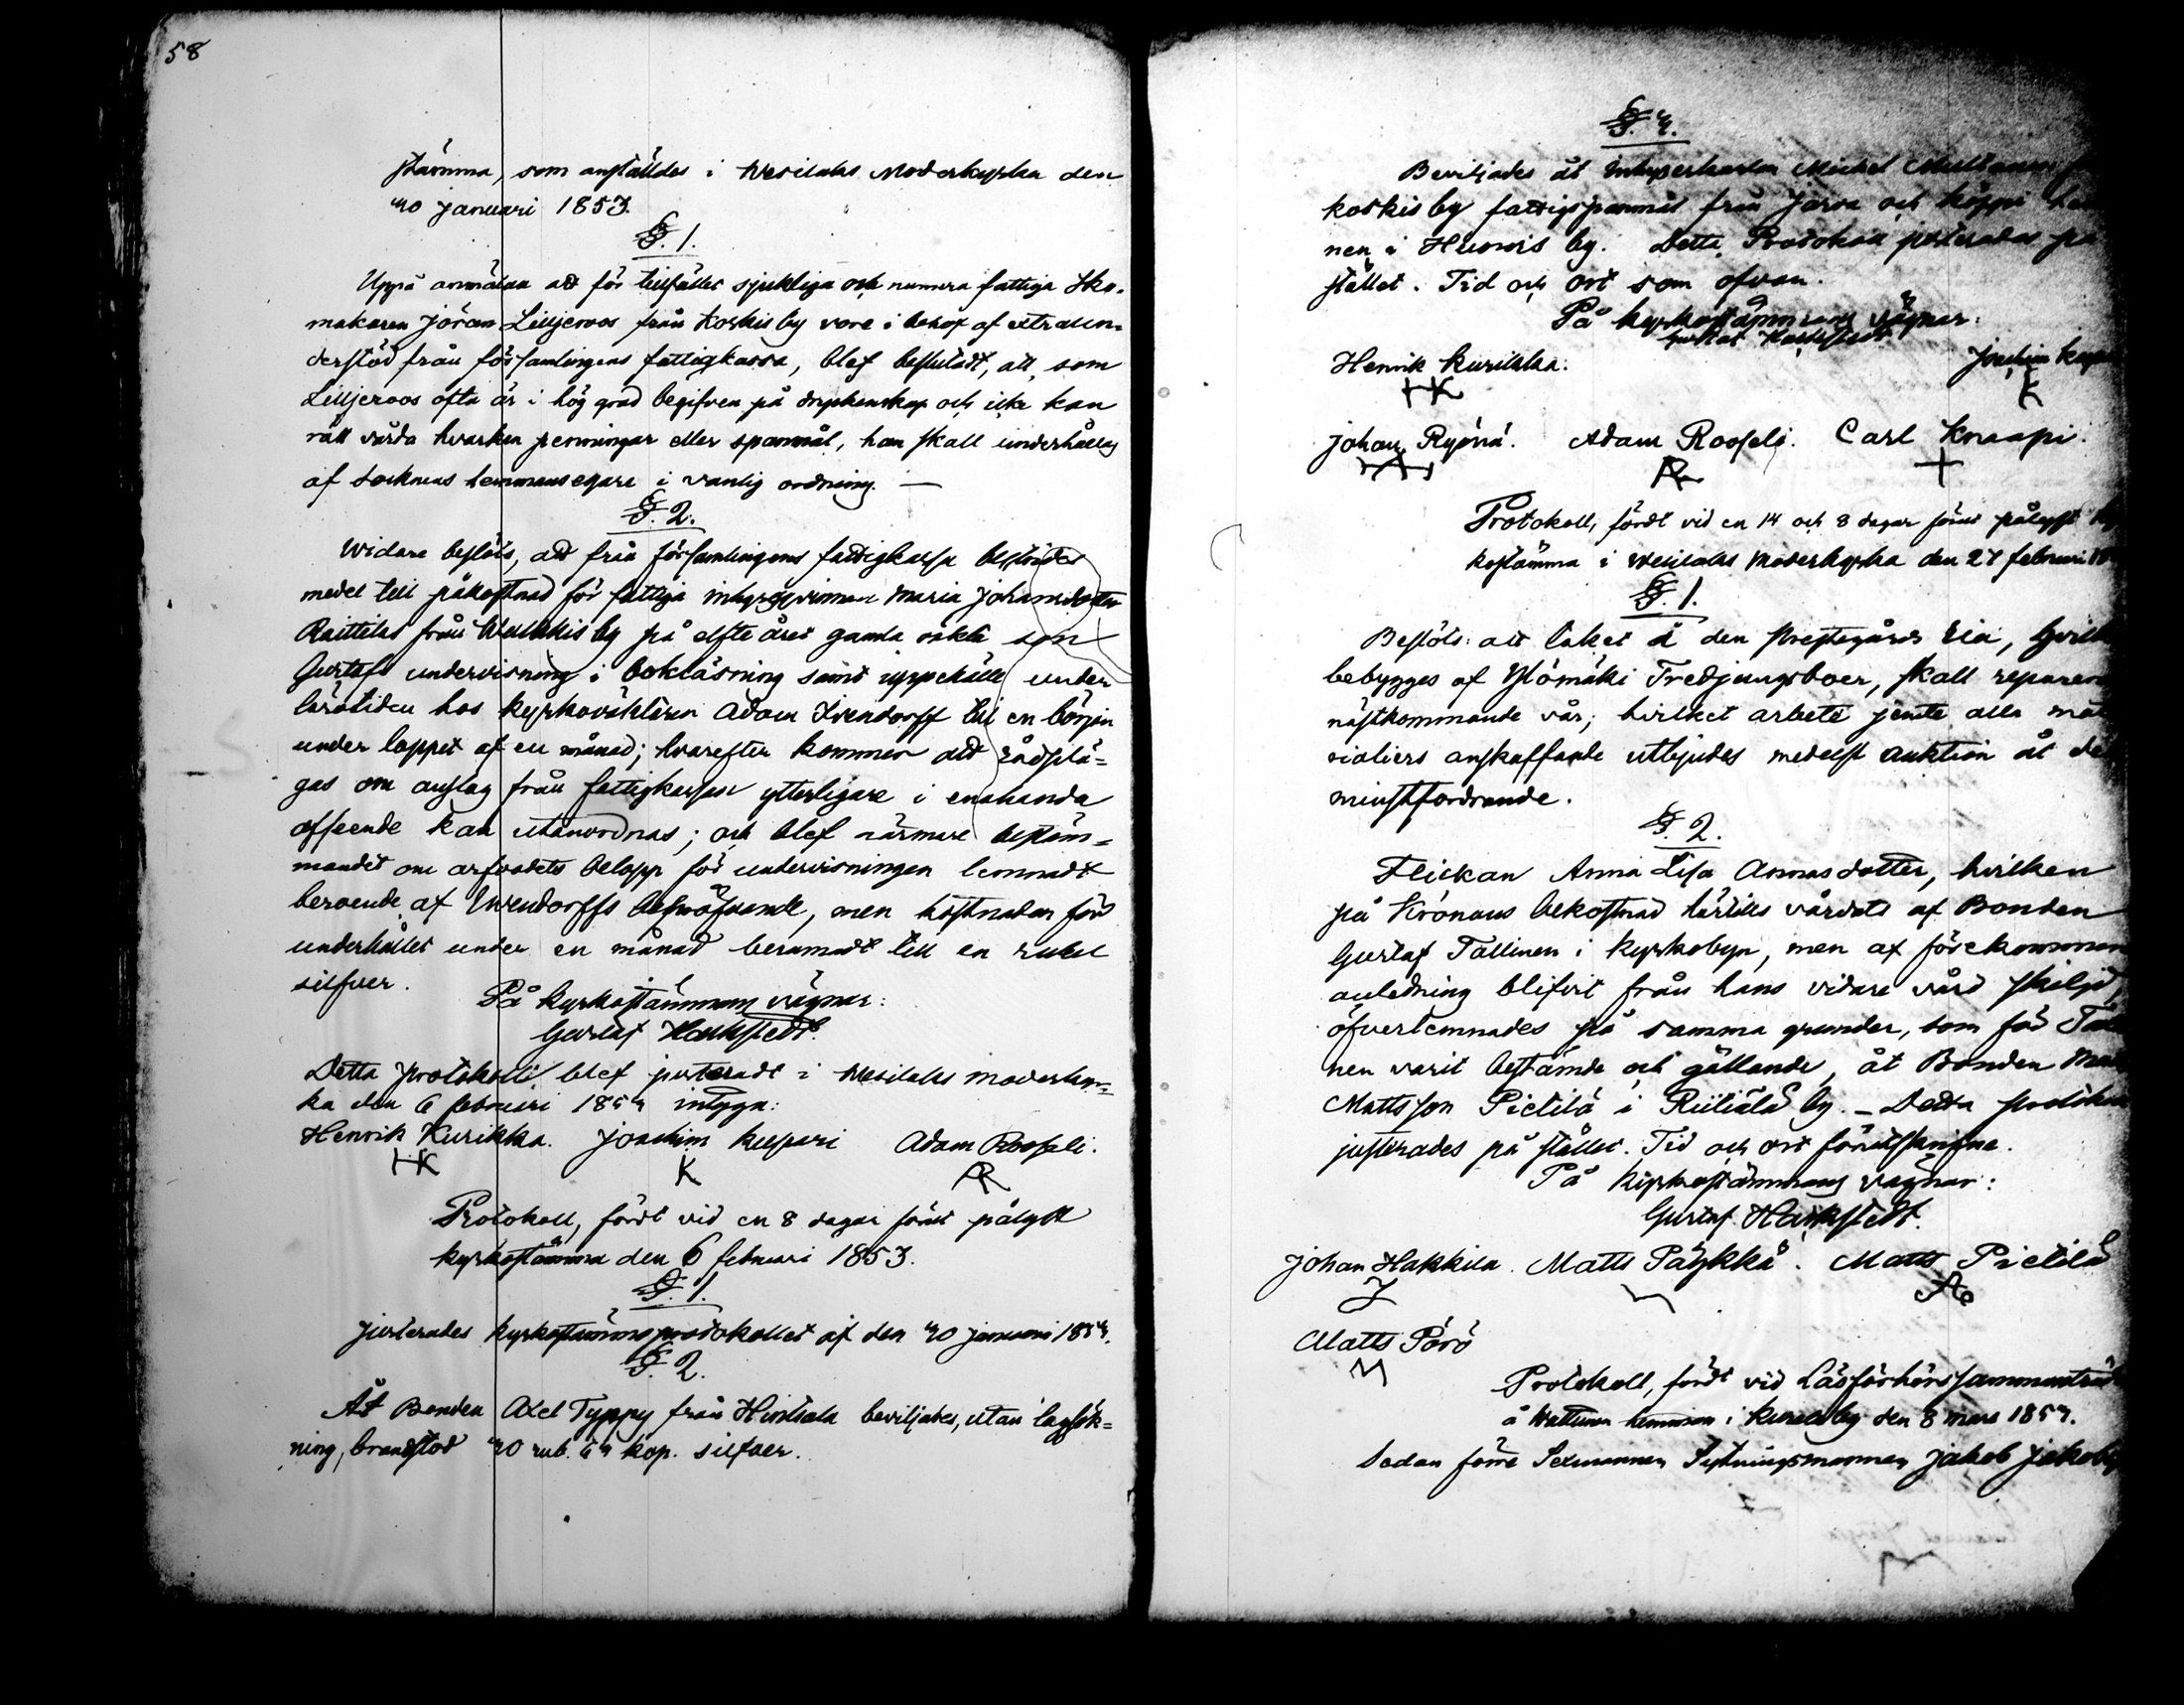 58
stämma, som anställdes i Wesilaks Moderkyrka den
30 januari 1853.
§. 1.
Uppå anmälan att för tillfället sjukliga och numera fattiga Sko-
makaren Jöran Lilljeroos från Koskis by vore i behof af extra un-
derstöd från församlingens fattigkassa, blef beslutadt, att, som
Lilljeroos ofta är i hög grad begifven på dryckenskap och icke kan
rätt vårda hvarken penningar eller spanmål, han skall underhållas
af Socknens hemmansegare i vanlig ordning. —
§. 2.
Widare beslöts, att från församlingens fattigkassa bestrides
medel till påkostnad för fattiga inhysesqvinnan Maria Johansdotter
Raittilas från by på elfte året gamla oäkta son
Gustafs undervisning i bokläsning samt uppehälle under
lärotiden hos kyrkoväktaren Adam Ivendorff till en början
under loppet af en månad; hvarefter kommer att rådplä-
gas om anslag från fattigkassan ytterligare i enahanda
afseende kan utanordnas; och blef närmare bestäm-
mandet om arfvodets belopp för undervisningen lemnadt
beroende af Ivendorffs bepröfvande, men kostnaden för
underhållet under en månad beramadt till en rubel
silfver.
På kyrkostämmans vägnar:
Gustaf Hackstedt.
Detta protokoll blef justeradt i Wesilaks moderkyr-
ka den 6 februari 1853 intyga:
Henrik Kurikka. Joachim Kuspari Adam Roofeli.
HK K AR
Protokoll, fördt vid en 8 dagar förut pålyst
kyrkostämma den 6 februari 1853.
§. 1.
Justerades kyrkostämmoprotokollet af den 30 januari 1853.
§. 2.
Åt Bonden Axel Typpy från Hinsala beviljades, utan lagsök-
ning, brandstod 30 rub. 63 kop. silfver.
§. 3.
Beviljades åt Inhyseskarlen Michel
Koskis by fattigspanmål från Jarva och Köppi
nen i by. Detta Protokoll justerades på
stället. Tid och ort som ofvan.
På kyrkostämmans vägnar:
Gustaf Hackstedt
Henrik Kurikka. Joachim
HK K
Johan Ryönä. Adam Roofeli. Carl Knaapi.
Protokoll, fördt vid en 14 och 8 dagar förut pålyst
kostämma i Wesilaks Moderkyrka den 27 februari
§. 1.
Beslöts: att taket å den Prestegårds Ria,
bebygges af Ylömäki Tredjungsboer, skall
nästkommande vår; hvilket arbete jemte alla
rialiers anskaffande utbjudes medelst auktion åt
minstfordrande.
§. 2.
Flickan Anna Lisa Annasdotter, hvilken
på Kronans bekostnad härtills vårdats af Bonden
Gustaf Tallinen i kyrkobyn, men af förekommen
anledning blifvit från hans vidare vård skiljd,
öfverlemnades på samma grunder, som för
nen varit bestämde och gällande, åt Bonden
Mattsson Pietilä i Riitiälä by. — Detta
justerades på stället. Tid och ort förutskrifne.
På kyrkostämmans vägnar:
Gustaf Hackstedt.
Johan Hakkila. Matts Päykkä. Matts Pietilä
Matts Pörö
Protokoll, fördt vid Läsförhörs
å hemman i by den 8 mars 1853.
Sedan förre Sexmannen Jakob